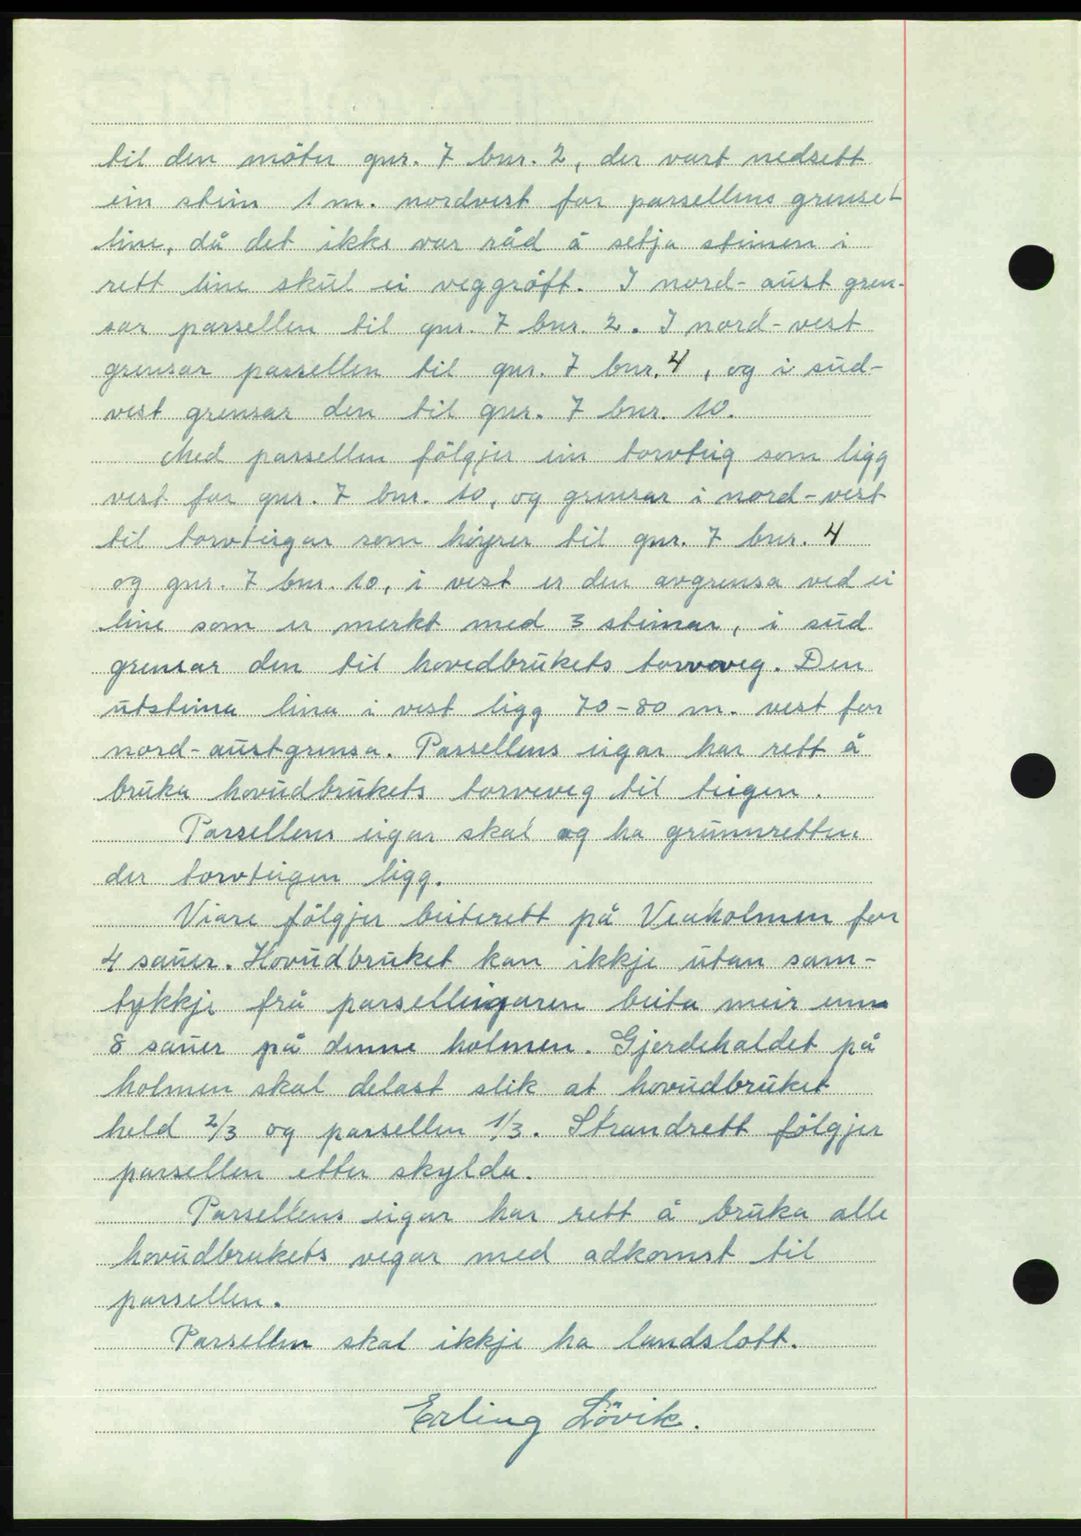 til den möter gnr. 7 bnr. 2, der vart nedsett
ein stein 1 m. nordvest for parsellens grense
line, då det ikke var råd å setja steinen i
rett line skul ei veggröft. I nord-aust gren-
sar parsellen til gnr. 7 bnr. 2. I nord-vest
grensar parsellen til gnr. 7 bnr. 4, og i sud-
vest grensar den til gnr. 7 bnr. 10.
Med parsellen fölgjer ein torvteig som ligg
vest for gnr. 7 bnr. 10, og grensar i nord-vest
til torvteigar som höyrer til gnr. 7 bnr. 4
og gnr. 7 bnr. 10, i vest er den avgrensa ved ei
line som er merkt med 3 steinar, i sud
grensar den til hovedbrukets torvveg. Den
utsteina lina i vest ligg 70-80 m. vest for
nord-austgrensa. Parsellens eigar har rett å
bruka hovudbrukets torveveg til teigen.
Parsellens eigar skal og ha grunnretten
der torvteigen ligg.
Viare fölgjer beiterett på Veaholmen for
4 sauer. Hovudbruket kan ikkje utan sam-
tykkje frå parselleigaren beita meir enn
8 sauer på denne holmen. Gjerdehaldet på
holmen skal delast slik at hovudbruket
held 2/3 og parsellen 1/3. Strandrett fölgjer
parsellen etter skylda.
Parsellens eigar har rett å bruka alle
hovudbrukets vegar med adkomst til
parsellen.
Parsellen skal ikkje ha landslott.
Erling Lövik.